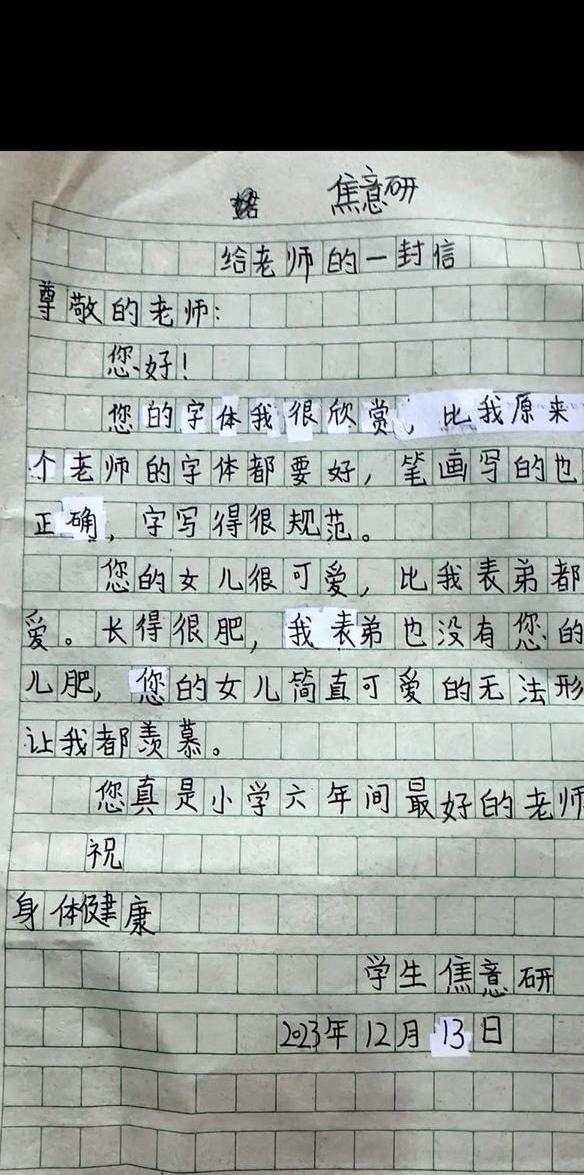 焦意研
给老师的一封信
尊敬的老师：
您好！
您的字体我很欣赏，比我原来
个老师的字体都要好，笔画写的也
正确，字写得很规范。
您的女儿很可爱，比我表弟都
爱。长得很肥，我表弟也没有您的
儿肥，您的女儿简直可爱的无法形
让我都羡慕。
您真是小学六年间最好的老师
祝
身体健康
学生焦意研
2023年12月13日